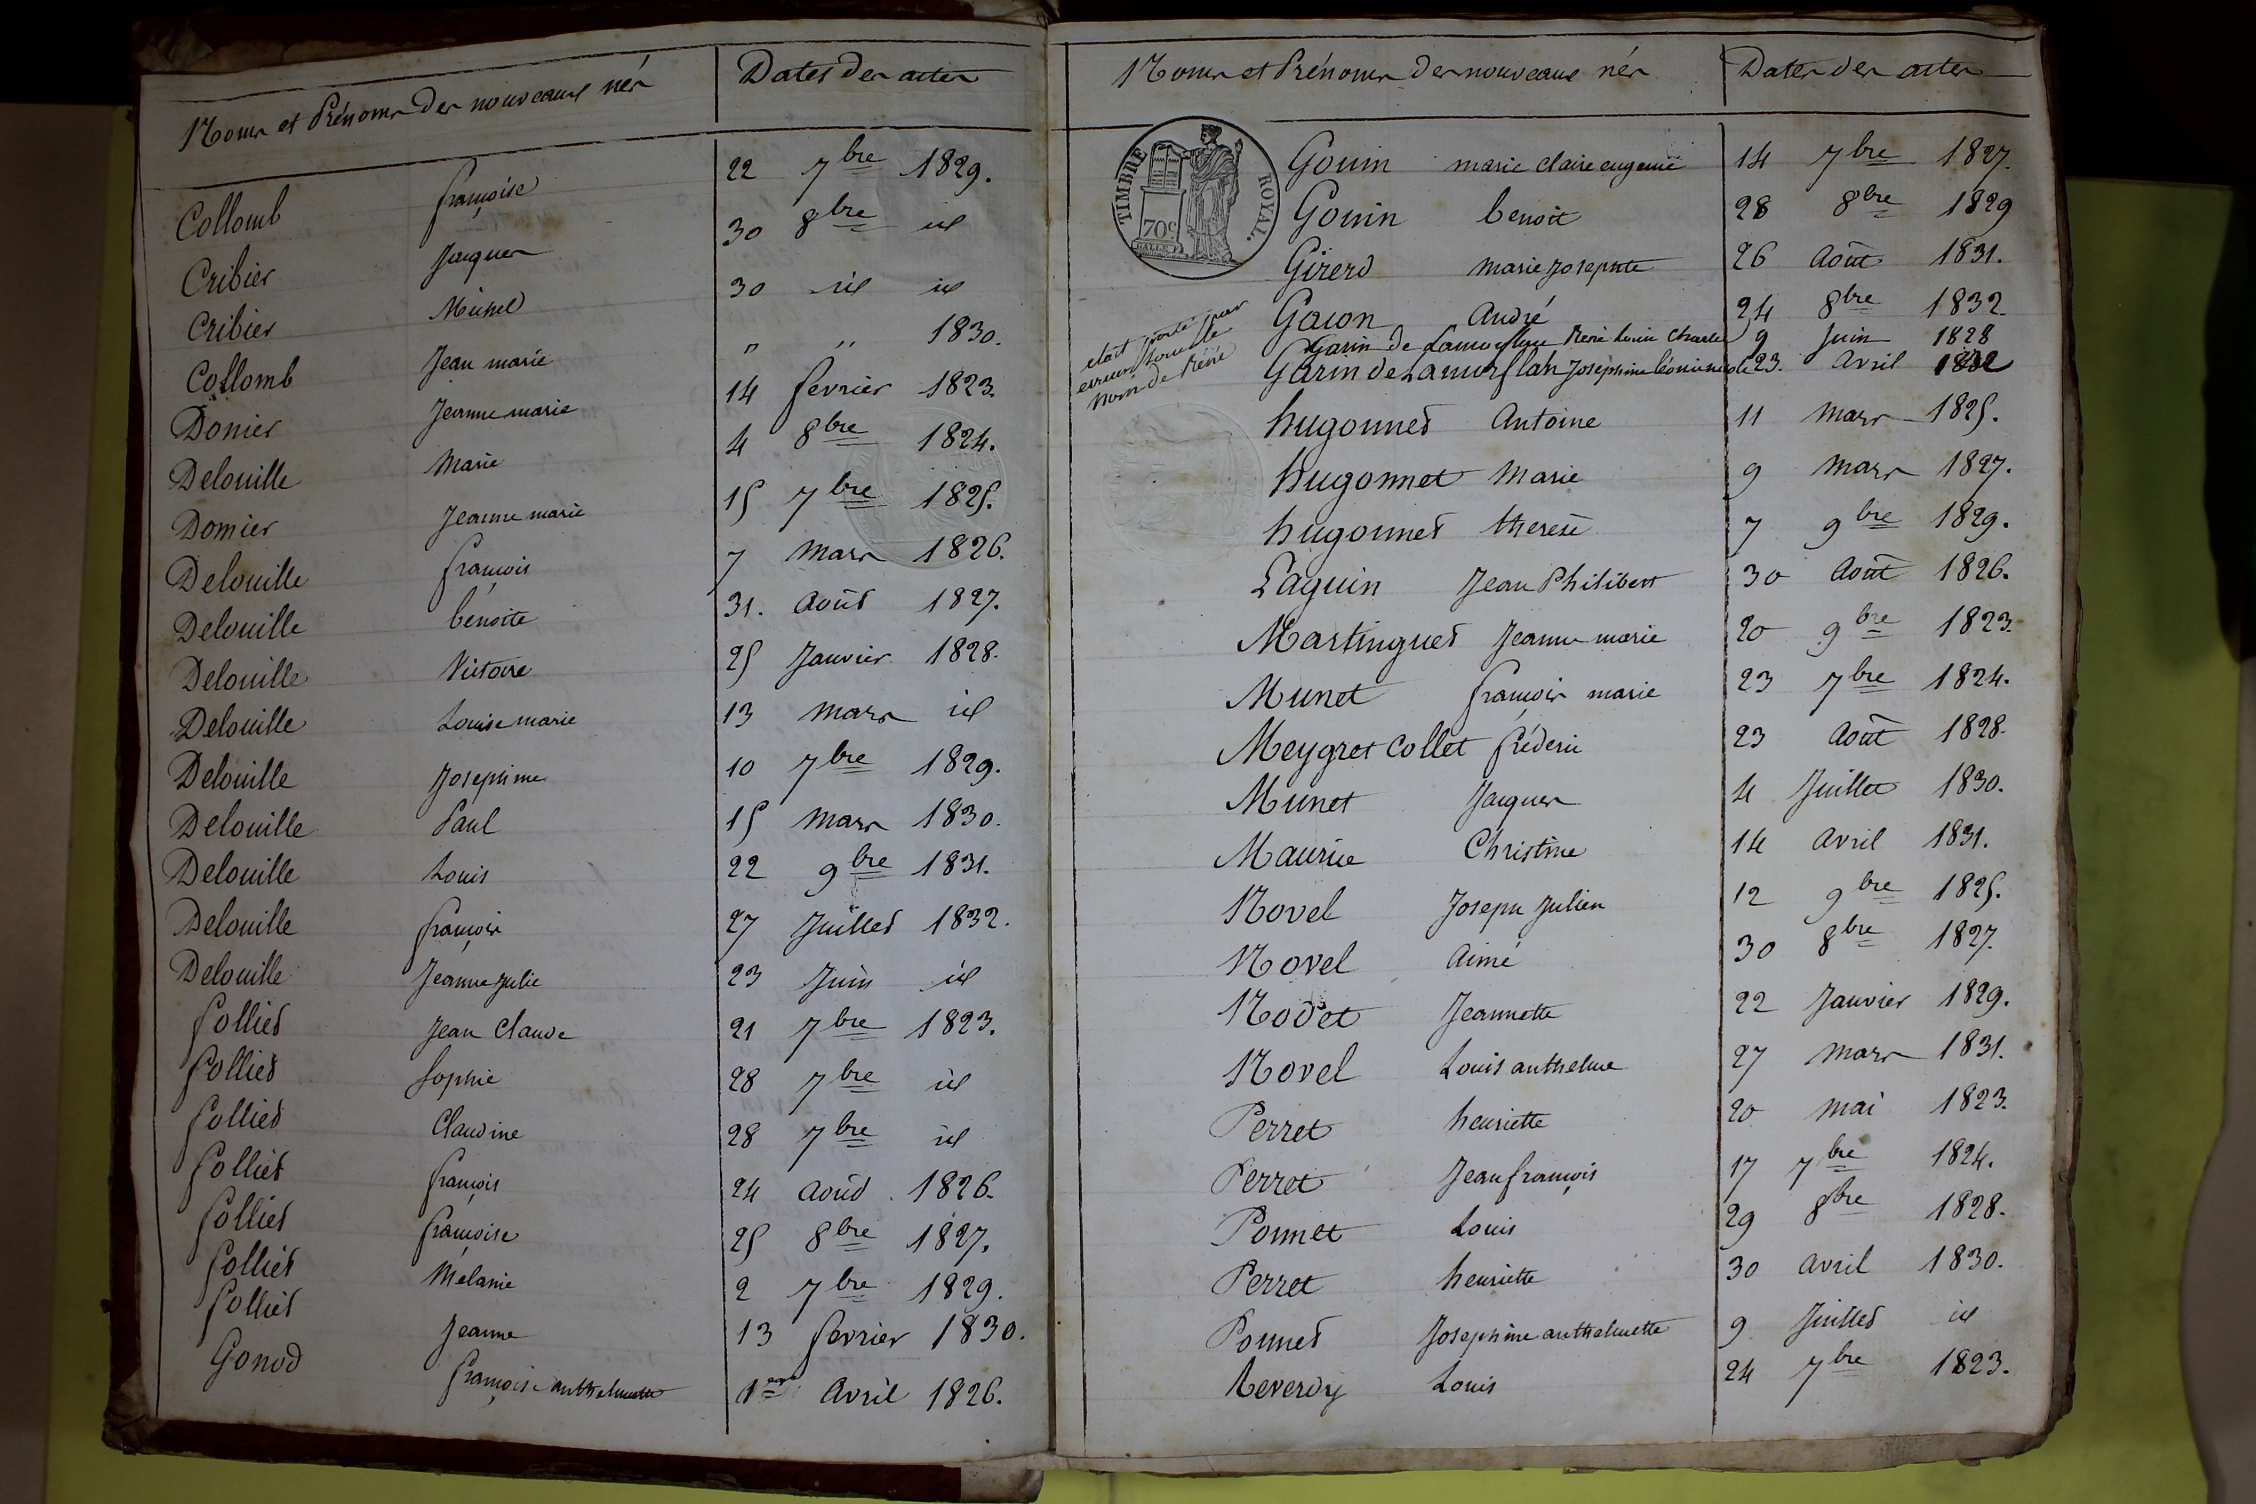 Noms et Prénoms des nouveaux nés Dates des actes
Collomb françoise 22 7bre 1829.
Cribier Jacques 30 8bre id
Cribier Michel 30 id id
Collomb Jean marie " " 1830.
Donier Jeanne marie 14 fevrier 1823.
Delouille Marie 4 8bre 1824.
Domier Jeanne marie 15 7bre 1825.
Delouille françois 7 Mars 1826.
Delouille benoite 31. Août 1827.
Delouille Victoire 25 Janvier 1828.
Delouille Louise marie 13 mars id
Delouille Josephine 10 7bre 1829.
Delouille Paul 15 mars 1830.
Delouille Louis 22 9bre 1831.
Delouille françois 27 Juillet 1832.
Delouille Jeanne Julie 23 Juin id
folliet Jean Claude 21 7bre 1823.
folliet Sophie 28 7bre id
folliet Claudine 28 7bre id
folliet françois 24 Août 1826.
folliet françoise 25 8bre 1827.
folliet Mélanie 2 7bre 1829.
folliet Jeanne 13 fevrier 1830.
Gonod françoise anthelmette 1er Avril 1826.
Noms et Prénoms des nouveaux nés Dates des actes
TIMBRE ROYAL.
70c
Gouin marie claire eugenie 14 7bre 1827.
Gouin benoit 28 8bre 1829
Girerd marie Josephte 26 Août 1831.
Gacon André 24 8bre 1832
était porté par
erreur sous le
nom de Réné
Garin de René Louis Charles 9 Juin 1828
Garin de Josephine 23. Avril 1832
hugonnet Antoine 11 Mars 1825.
hugonnet Marie 9 Mars 1827.
hugonnet therese 7 9bre 1829.
Laguin Jean Philibert 30 Août 1826.
Martinguet Jeanne marie 20 9bre 1823.
Munet françois marie 23 7bre 1824.
Meygret Collet fréderic 23 Août 1828.
Munet Jacques 4 Juillet 1830.
Maurice Christine 14 Avril 1831.
Novel Joseph Julien 12 9bre 1825.
Novel Aimé 30 8bre 1827.
Nodet Jeannette 22 Janvier 1829.
Novel Louis anthelme 27 Mars 1831.
Perret henriette 20 Mai 1823.
Perret Jean françois 17 7bre 1824.
Ponnet Louis 29 8bre 1828.
Perret henriette 30 Avril 1830.
Ponnet Josephine anthelmette 9 Juillet id
Reverdy Louis 24 7bre 1823.